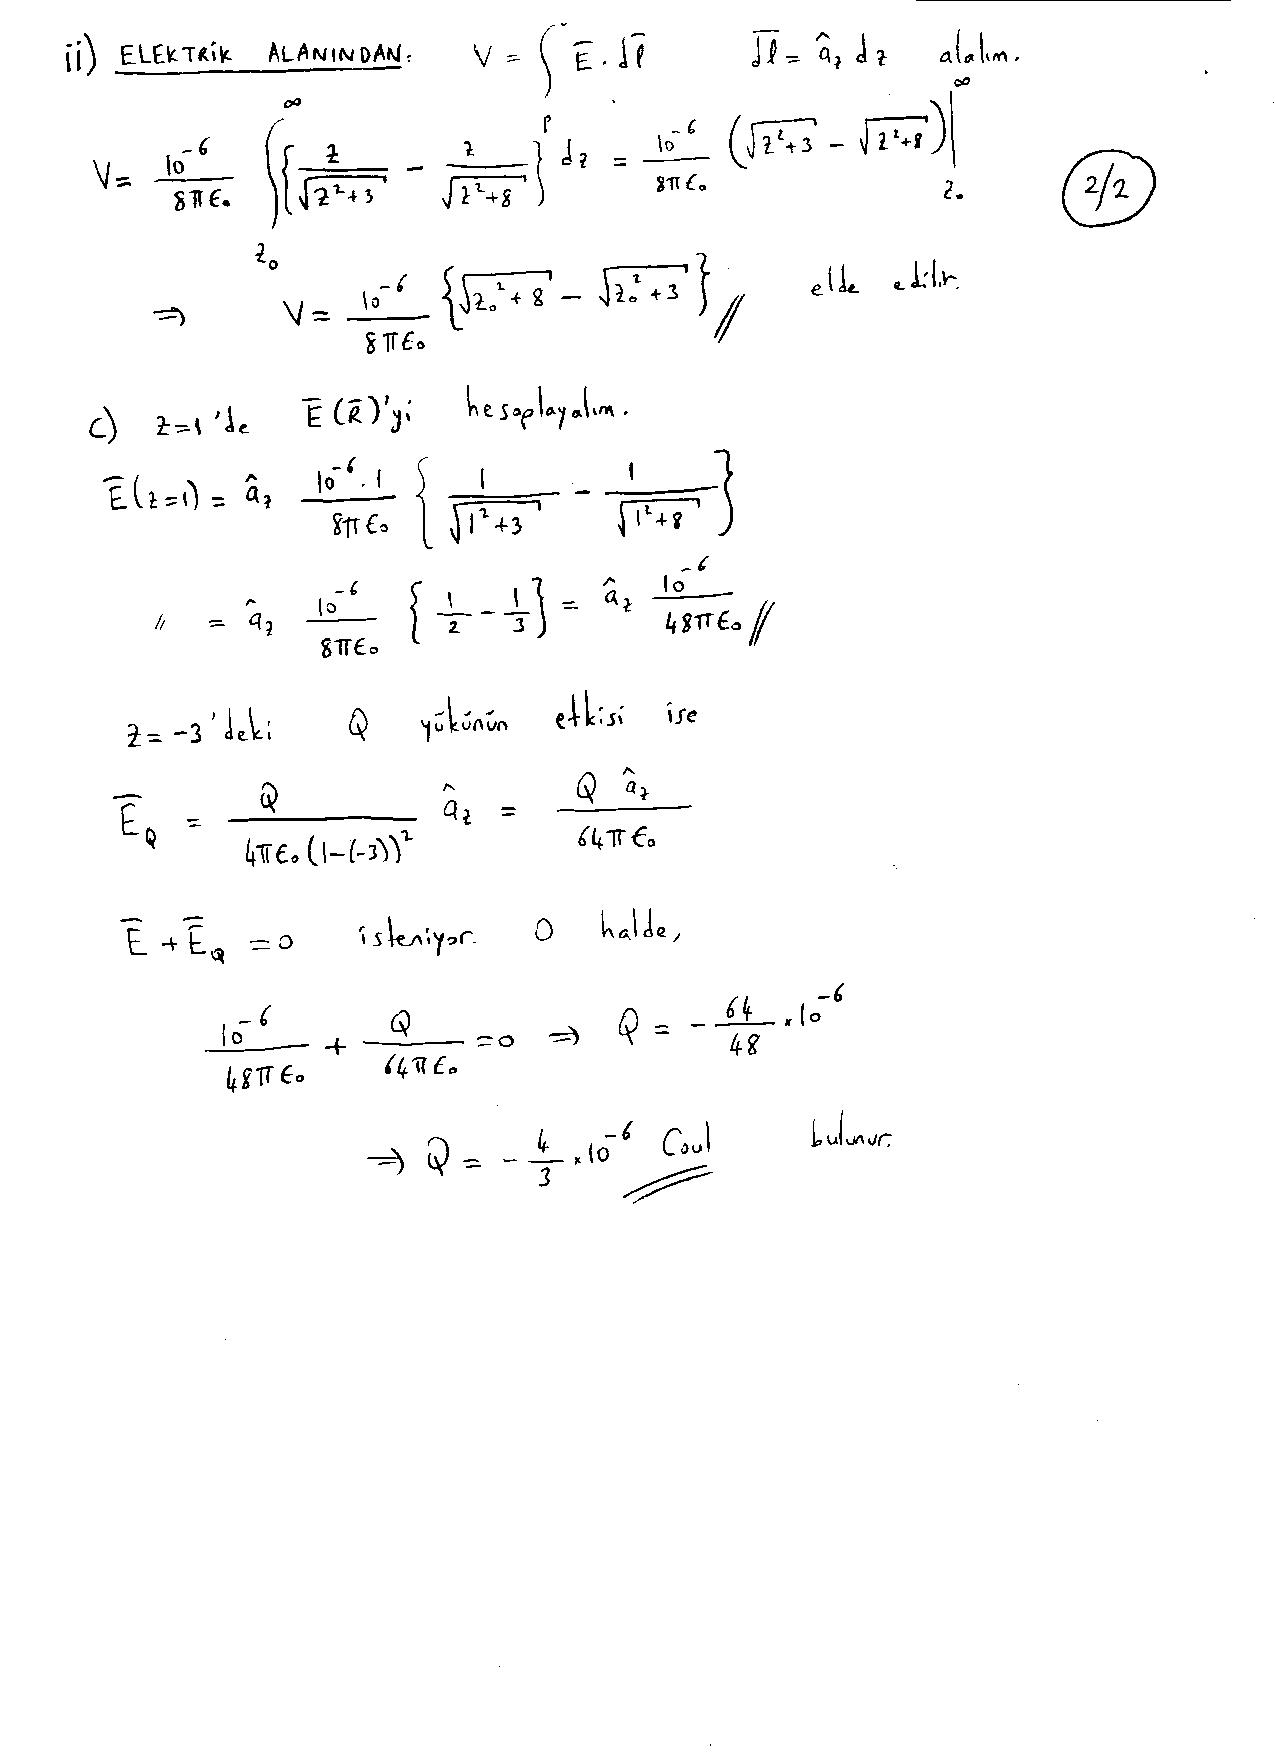 ii) ELEKTRİK ALANINDAN: V = ∫ Ē . d̄l̄ d̄l̄ = â_z dz alalım.
V = 10^-6 / 8πε₀ ∫_{z₀}^{∞} { z / √(z²+3) - z / √(z²+8) } dz = 10^-6 / 8πε₀ (√(z²+3) - √(z²+8)) |_{z₀}^{∞}
2/2
⇒ V = 10^-6 / 8πε₀ {√(z₀²+8) - √(z₀²+3)} // elde edilir.
c) z=1 'de Ē(R̄)'yi hesaplayalım.
Ē(z=1) = â_z 10^-6 . 1 / 8πε₀ { 1 / √(1²+3) - 1 / √(1²+8) }
〃 = â_z 10^-6 / 8πε₀ { 1/2 - 1/3 } = â_z 10^-6 / 48πε₀ //
z = -3 'deki Q yükünün etkisi ise
Ē_Q = Q / 4πε₀(1-(-3))² â_z = Q â_z / 64πε₀
Ē + Ē_Q = 0 isteniyor. O halde,
10^-6 / 48πε₀ + Q / 64πε₀ = 0 ⇒ Q = - 64/48 × 10^-6
⇒ Q = - 4/3 × 10^-6 Coul bulunur.